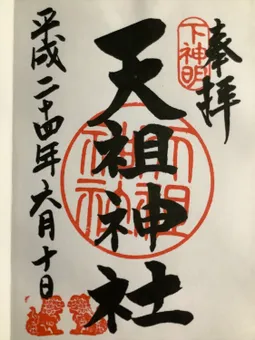 奉拝
下神明
天祖神社
平成二十四年六月十日